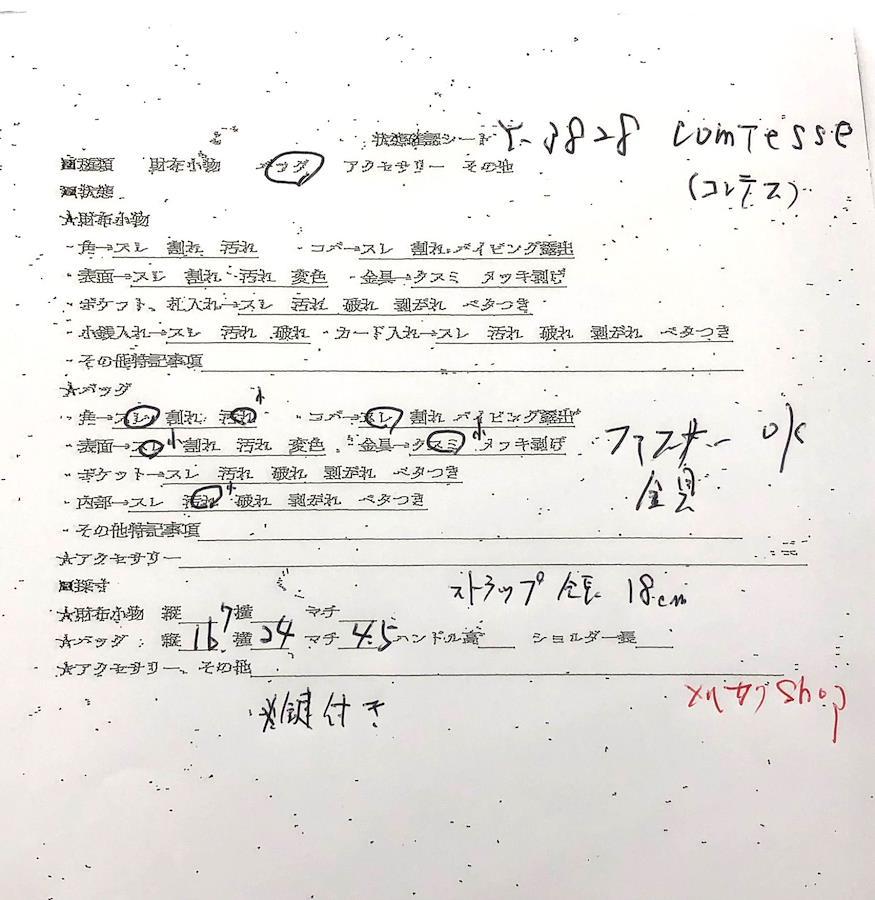 状態確認シート Y-3828 comTesse
■種類 財布小物 バッグ アクセサリー その他
(コンテス)
■状態
★財布小物
・角→スレ 割れ 汚れ ・コバ→スレ 割れ パイピング露出
・表面→スレ 割れ 汚れ 変色 ・金具→クスミ メッキ剥げ
・ポケット、札入れ→スレ 汚れ 破れ 剥がれ ベタつき
・小銭入れ→スレ 汚れ 破れ ・カード入れ→スレ 汚れ 破れ 剥がれ ベタつき
・その他特記事項
★バッグ
・角→スレ 割れ 汚れ小 ・コバ→スレ 割れ パイピング露出
・表面→スレ小 割れ 汚れ 変色 ・金具→クスミ小 メッキ剥げ
ファスナー OK
・ポケット→スレ 汚れ 破れ 剥がれ ベタつき
金具
・内部→スレ 汚れ小 破れ 剥がれ ベタつき
・その他特記事項
★アクセサリー
■採寸
ストラップ 全長 18cm
★財布小物 縦 横 マチ
★バッグ 縦 16 横 24 マチ 4.5 ハンドル高 ショルダー長
★アクセサリー、その他
※鍵付き